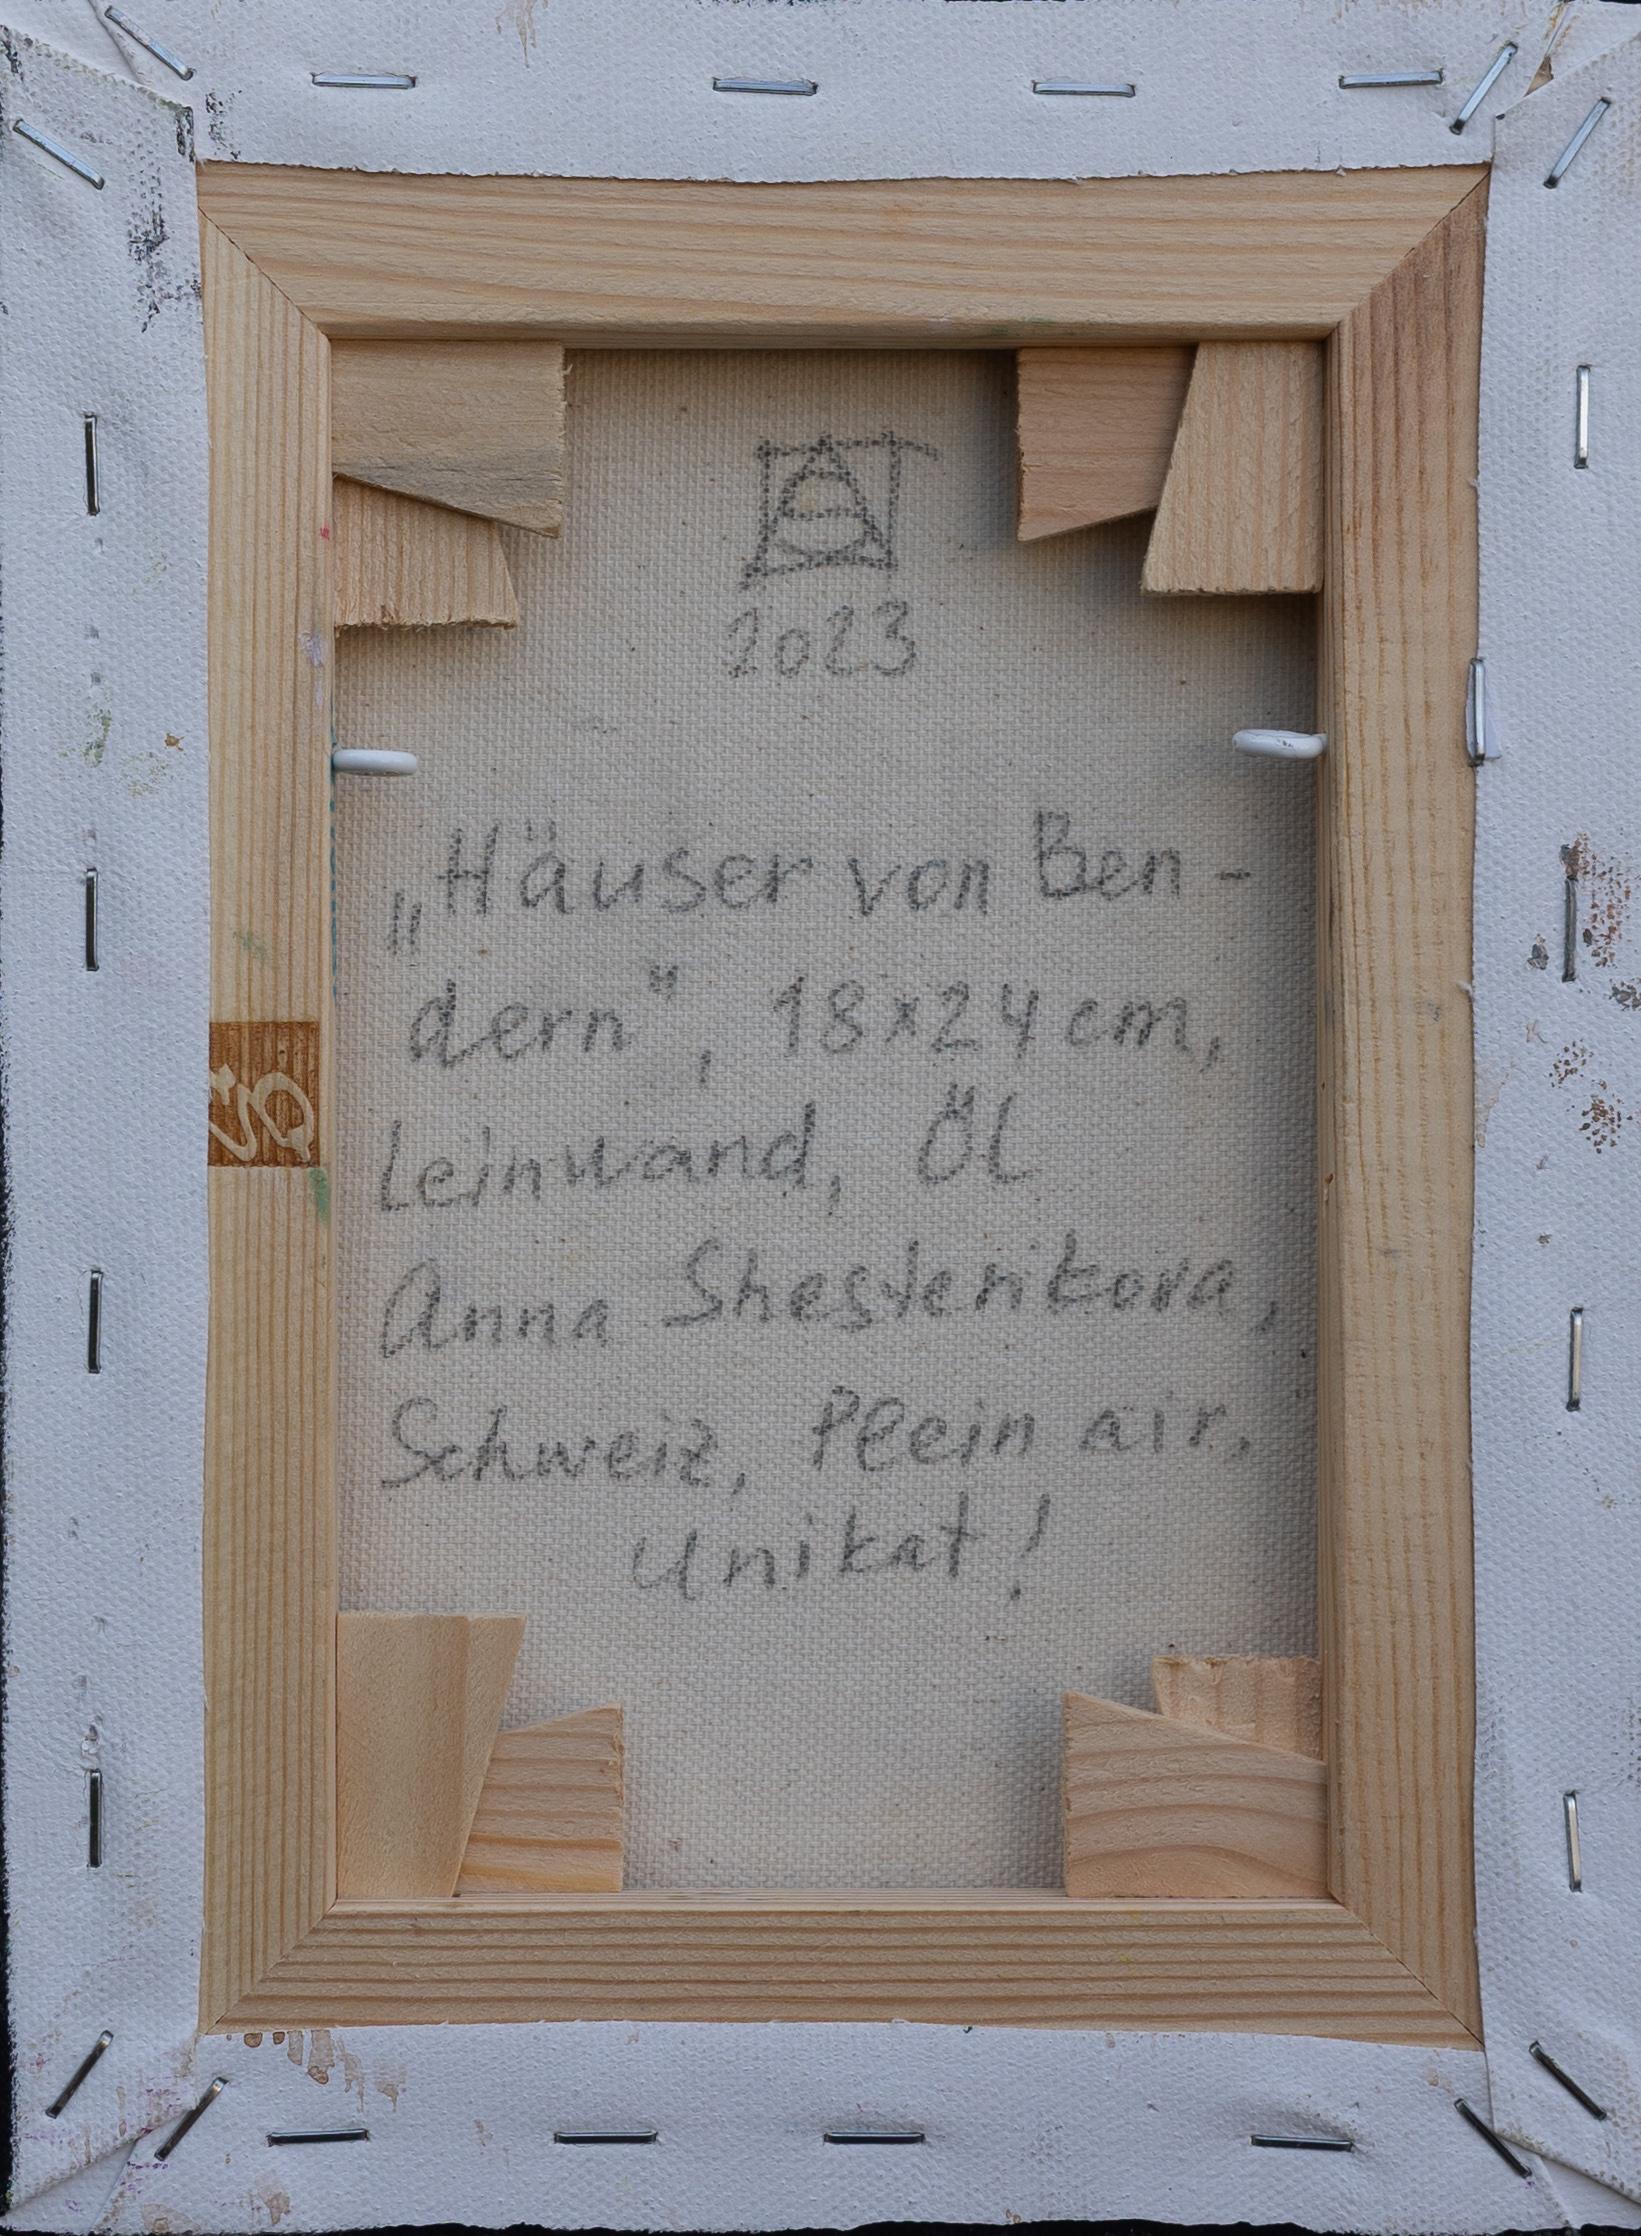 2023
„Häuser von Ben-
dern", 18x24cm,
Leinwand, Öl
Anna Shesterikova,
Schweiz, Plein air.
Unikat!